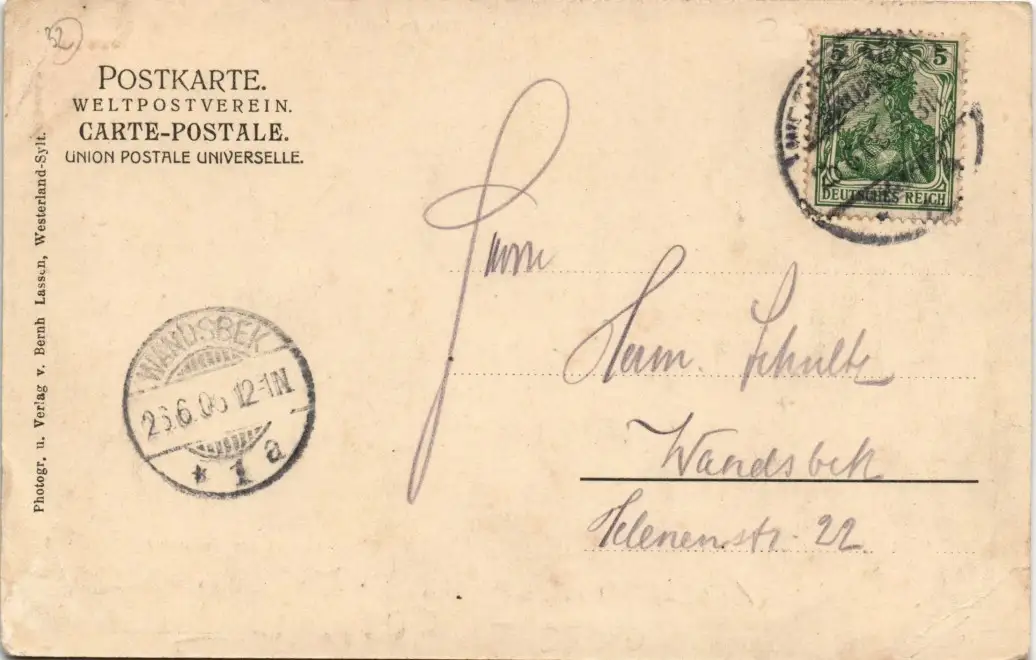 32
POSTKARTE.
WELTPOSTVEREIN.
CARTE-POSTALE.
UNION POSTALE UNIVERSELLE.
Photogr. u. Verlag v. Bernh Lassen, Westerland-Sylt.
5
DEUTSCHES REICH
WANDSBEK
6.06 12-1N
* 1 a
Herm. Schultz
Wandsbek
Helenenstr. 22.